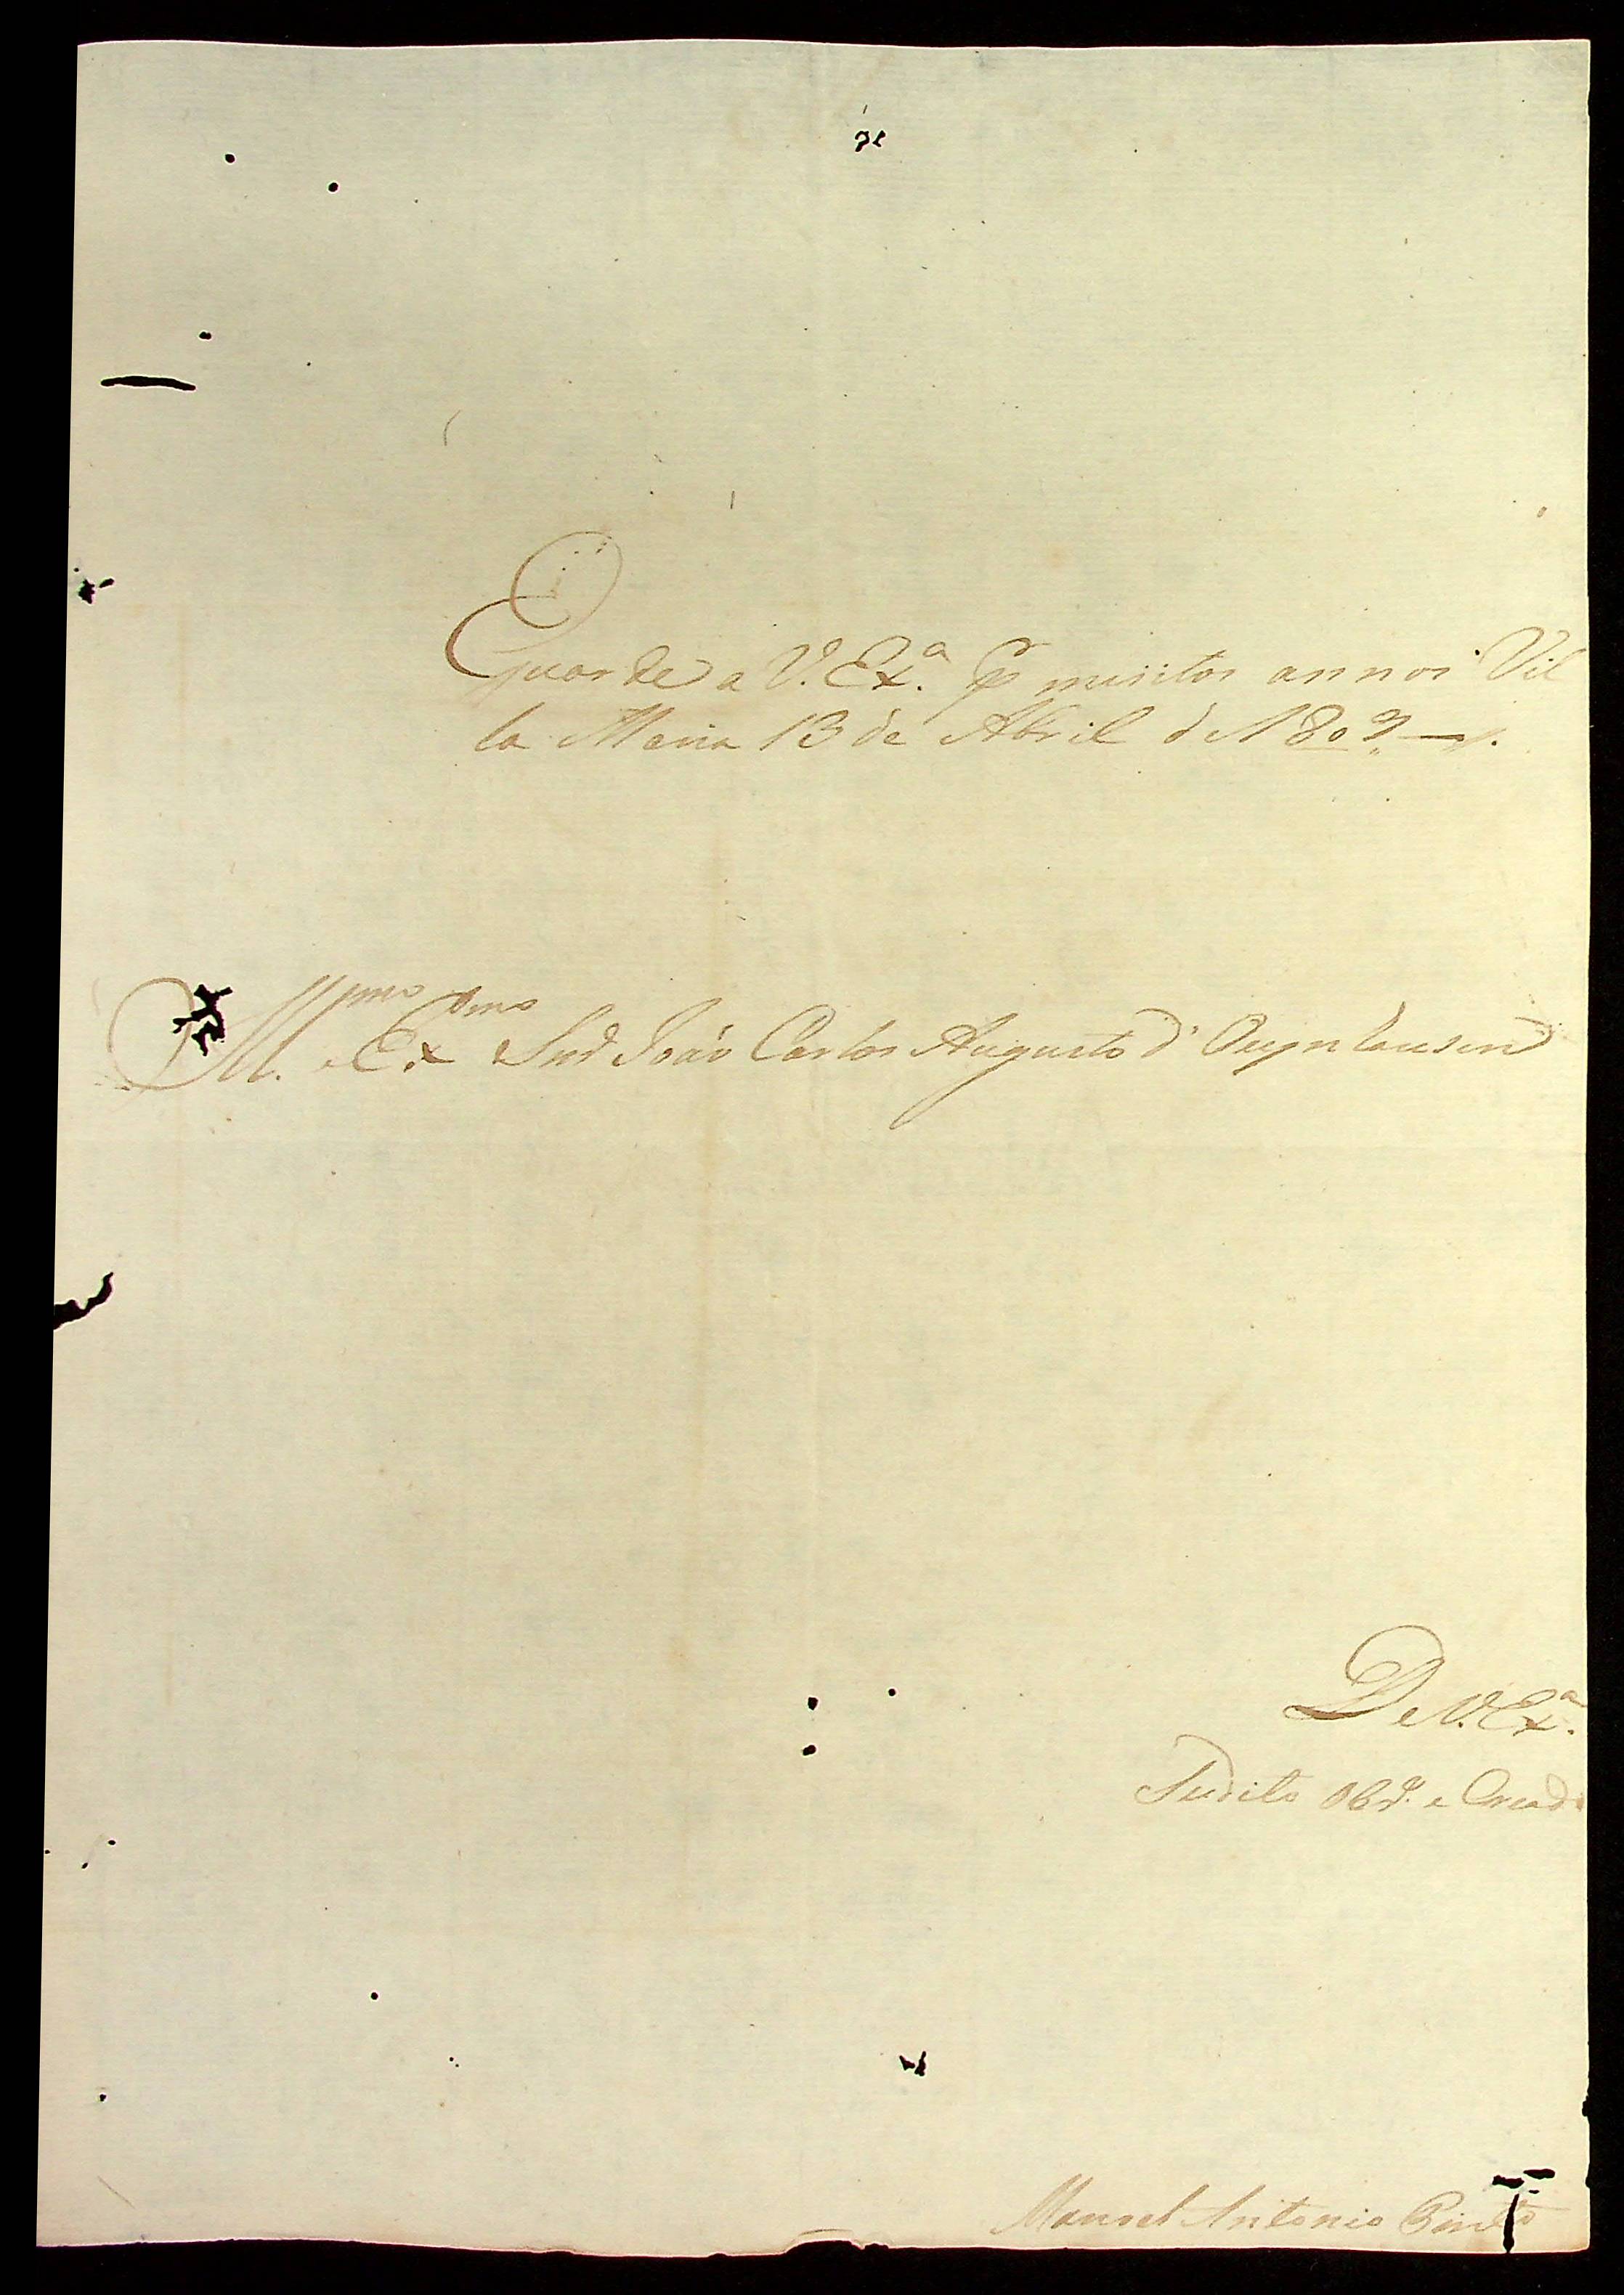 Guarde a V. Exª. pr muitos annos Vil
la Maria 13 de Abril d 1809
Illmo e Exmo Snr João Carlos Augusto d' Oeynhausen
De V. Exª.
Sudito obr. e Cread
Manoel Antonio Pinto